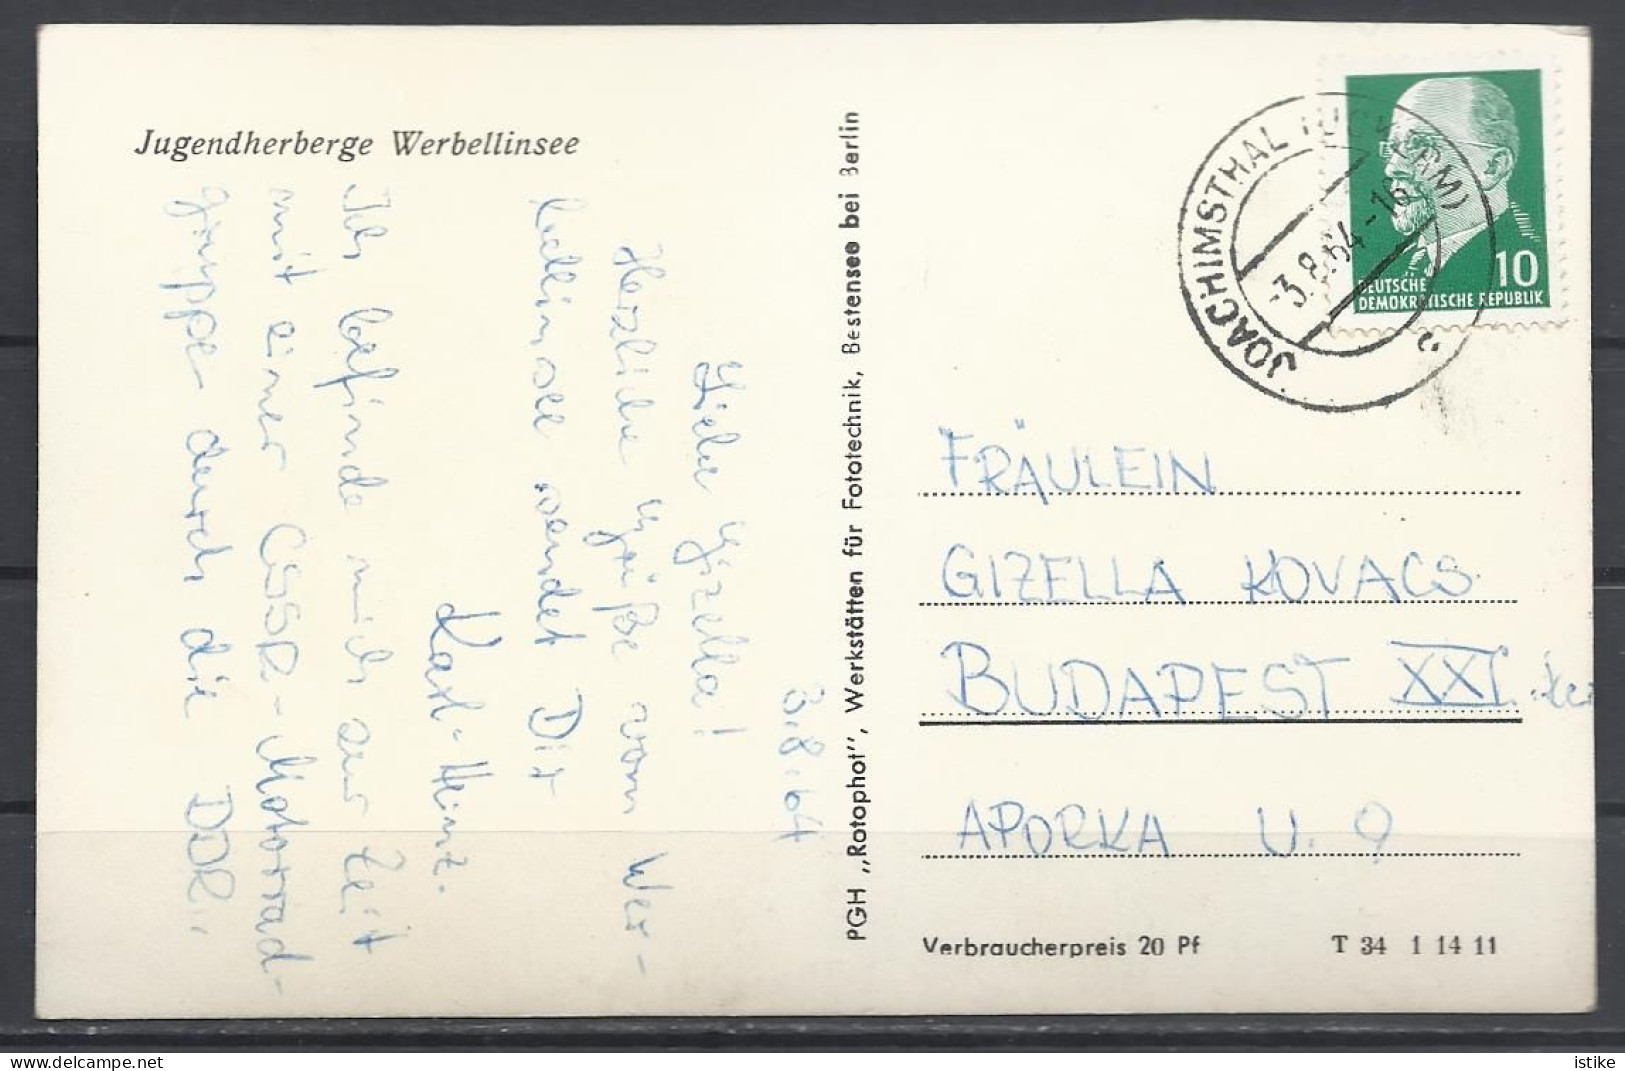 Jugendherberge Werbellinsee
3.8.64
Liebe Gizella!
Herzliche Grüße vom Wer-
bellinsee sendet Dir
Karl-Heinz.
Ich befinde mich zur Zeit
mit einer ČSSR-Motorrad-
gruppe durch die DDR.
PGH „Rotophot", Werkstätten für Fototechnik, Bestensee bei Berlin
JOACHIMSTHAL (UCKERM)
-3.8.64-16
10
DEUTSCHE
DEMOKRATISCHE REPUBLIK
FRÄULEIN
GIZELLA KOVACS
BUDAPEST XXI. ker
APORKA U. 9
Verbraucherpreis 20 Pf
T 34 1 14 11
delcampe.net
istike